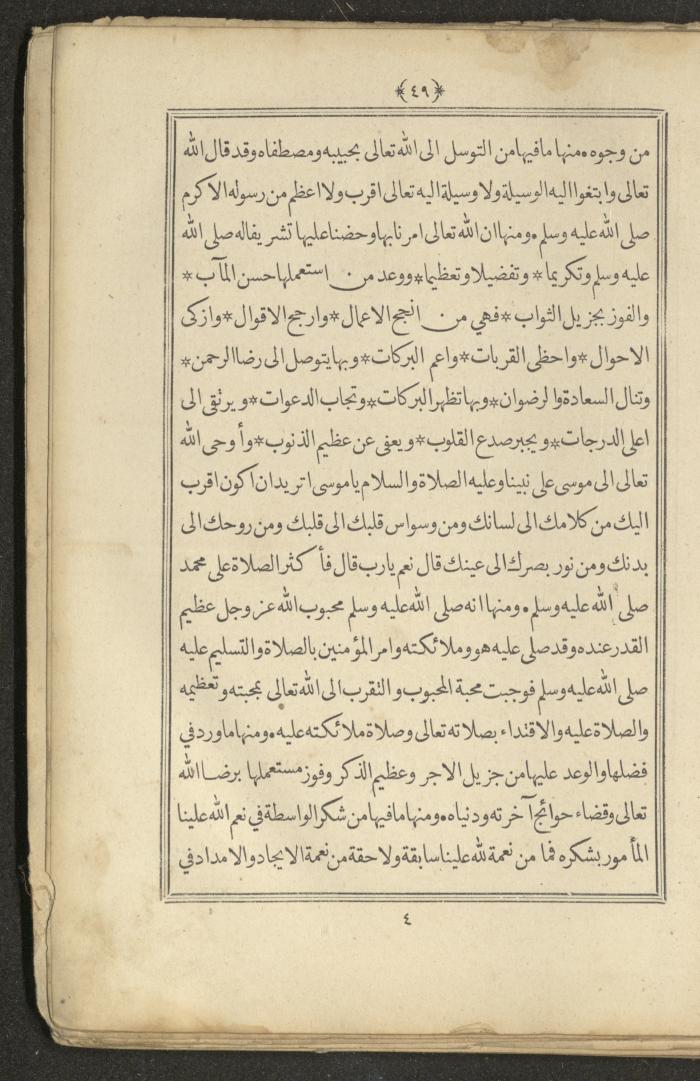 ﴿٤٩﴾
من وجوه • منها ما فيها من التوسل الى الله تعالى بحبيبه ومصطفاه وقد قال الله
تعالى وابتغوا اليه الوسيلة ولا وسيلة اليه تعالى اقرب ولا اعظم من رسوله الاكرم
صلى الله عليه وسلم • ومنها ان الله تعالى امرنا بها وحضنا عليها تشريفا له صلى الله
عليه وسلم وتكريما * وتفضيلا وتعظيما * ووعد من استعملها حسن المآب *
والفوز بجزيل الثواب * فهي من انجح الاعمال * وارجح الاقوال * وازكى
الاحوال * واحظى القربات * واعم البركات * وبها يتوصل الى رضا الرحمن *
وتنال السعادة والرضوان * وبها تظهر البركات * وتجاب الدعوات * ويرتقى الى
اعلى الدرجات * ويجبر صدع القلوب * ويعفى عن عظيم الذنوب * وأوحى الله
تعالى الى موسى على نبينا وعليه الصلاة والسلام يا موسى اتريد ان اكون اقرب
اليك من كلامك الى لسانك ومن وسواس قلبك الى قلبك ومن روحك الى
بدنك ومن نور بصرك الى عينك قال نعم يارب قال فأكثر الصلاة على محمد
صلى الله عليه وسلم • ومنها انه صلى الله عليه وسلم محبوب الله عز وجل عظيم
القدر عنده وقد صلى عليه هو وملائكته وامر المؤمنين بالصلاة والتسليم عليه
صلى الله عليه وسلم فوجبت محبة المحبوب والتقرب الى الله تعالى بمحبته وتعظيمه
والصلاة عليه والاقتداء بصلاته تعالى وصلاة ملائكته عليه • ومنها ما ورد في
فضلها والوعد عليها من جزيل الاجر وعظيم الذكر وفوز مستعملها برضا الله
تعالى وقضاء حوائج آخرته ودنياه • ومنها ما فيها من شكر الواسطة في نعم الله علينا
المأمور بشكره فما من نعمة لله علينا سابقة ولاحقة من نعمة الايجاد والامداد في
٤